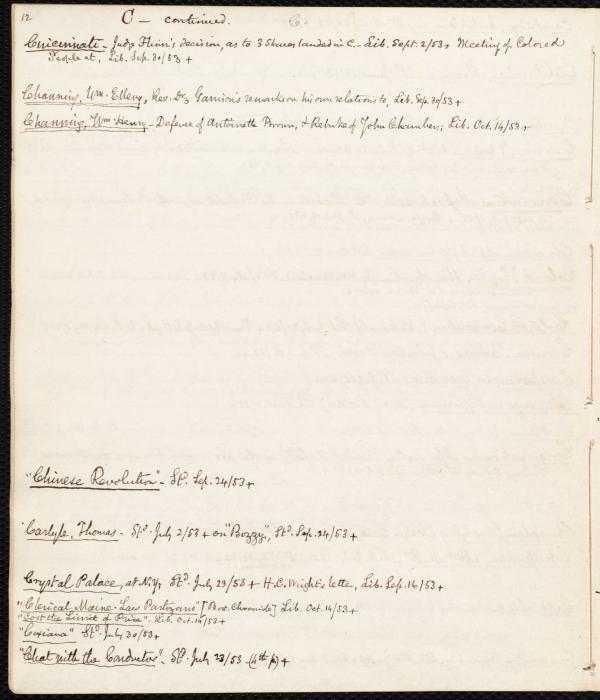 12
C — continued.
Cincinnati - Judge Flinn's decision, as to 3 Slaves landed in C. - Lib. Sept. 2/53 + Meeting of Colored
People at, Lib. Sep. 30/53 +
Channing, Wm. Ellery, Rev. Dr., Garrison's remarks on his own relations to, Lib. Sep. 30/53 +
Channing, Wm. Henry - Defence of Antoinette Brown, & Rebuke of John Chambers; Lib. Oct. 14/53 +
"Chinese Revolution" - Std. Sep. 24/53 +
Carlyle, Thomas - Std. July 2/53 + on "Bozzy", Std. Sep. 24/53 +
Crystal Palace, at N.Y., Std. July 29/53 + H.C. Wright's letter, Lib. Sep. 16/53 +
"Clerical Maine-Law Partizans" [Bos. Chronicle] Lib. Oct. 14/53 +
"Cost the Limit of Price" - Lib. Oct. 14/53 +
Std. July 30/53 +
"Chat with the Conductor" - Std. July 23/53 (4th p) +